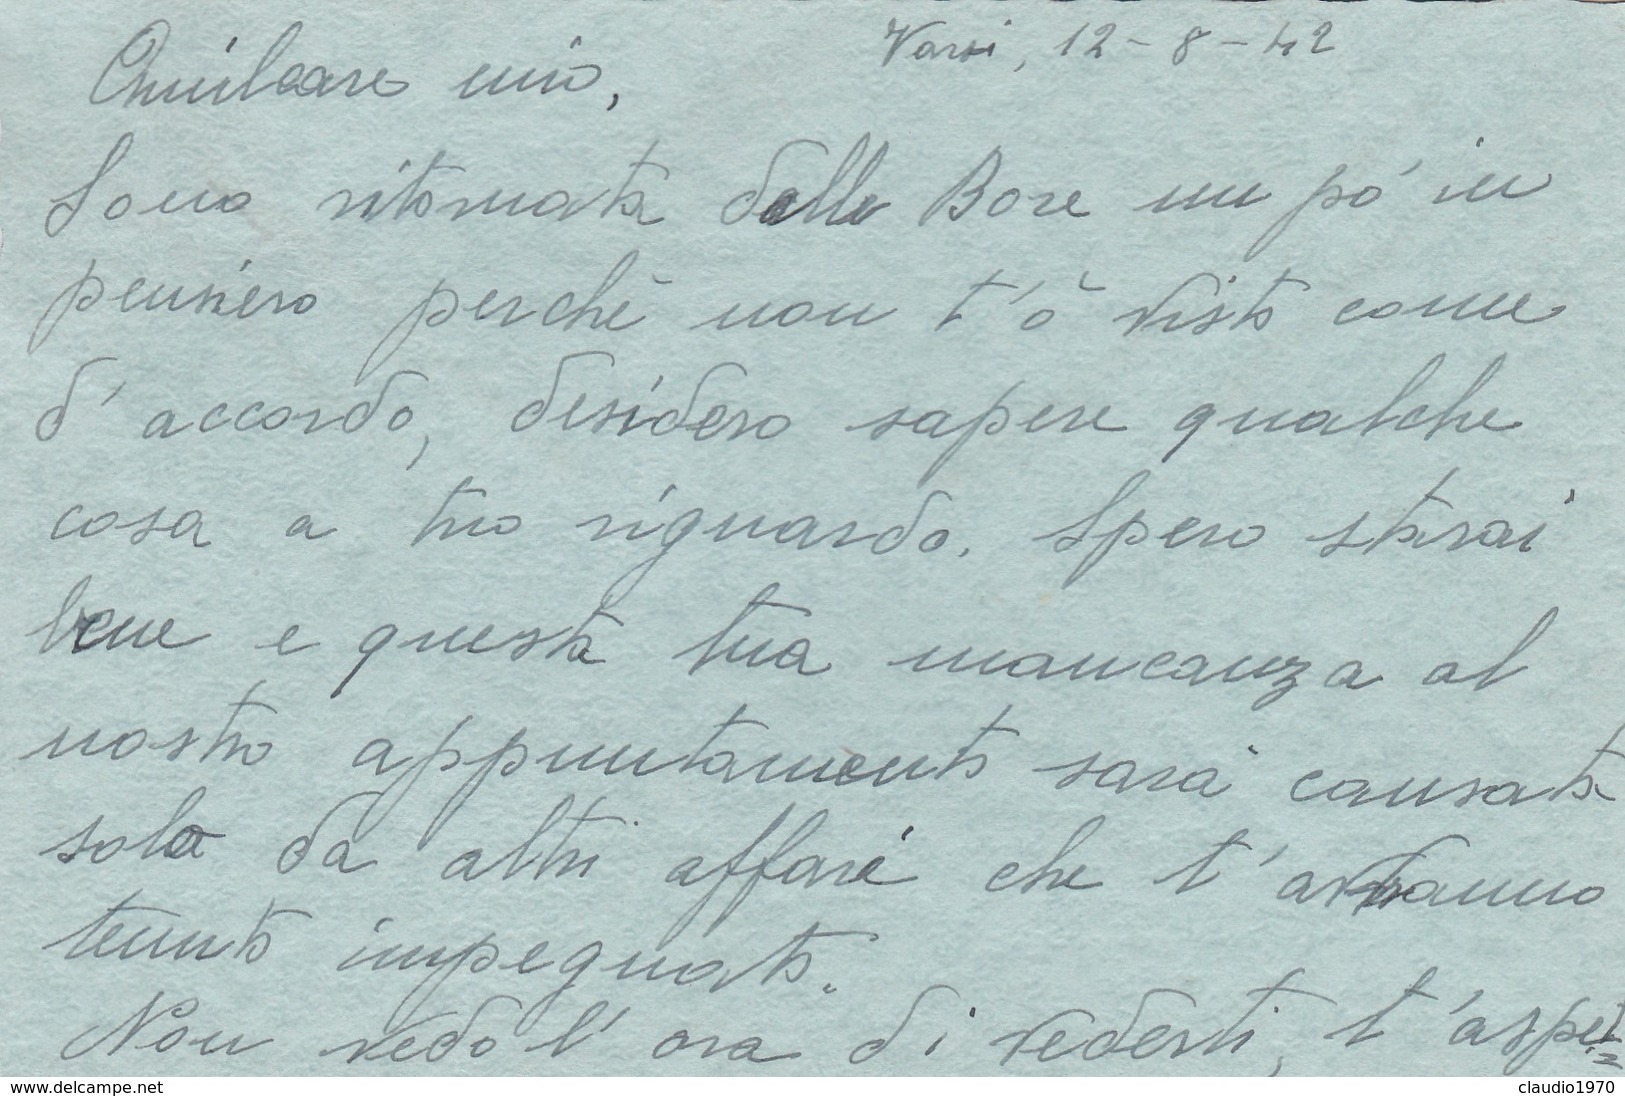 Varsi, 12-8-42
Amilcare mio,
Sono ritornata dalle Bore un pó in
pensiero perchè non t'ò visto come
d'accordo, desidero sapere qualche
cosa a tuo riguardo. Spero starai
bene e questa tua mancanza al
nostro appuntamento sarà causata
solo da altri affari che t'avranno
tenuto impegnato.
Non vedo l'ora di vederti, t'aspet=
www.delcampe.net
claudio1970